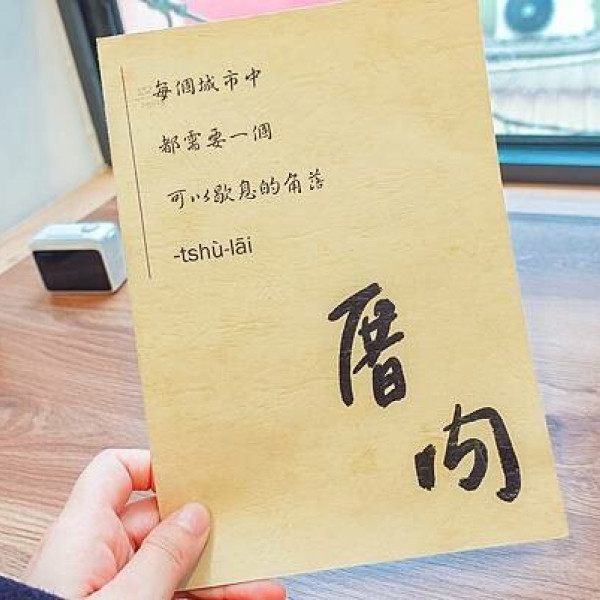 每個城市中
都需要一個
可以歇息的角落
-tshù-lāi
厝內